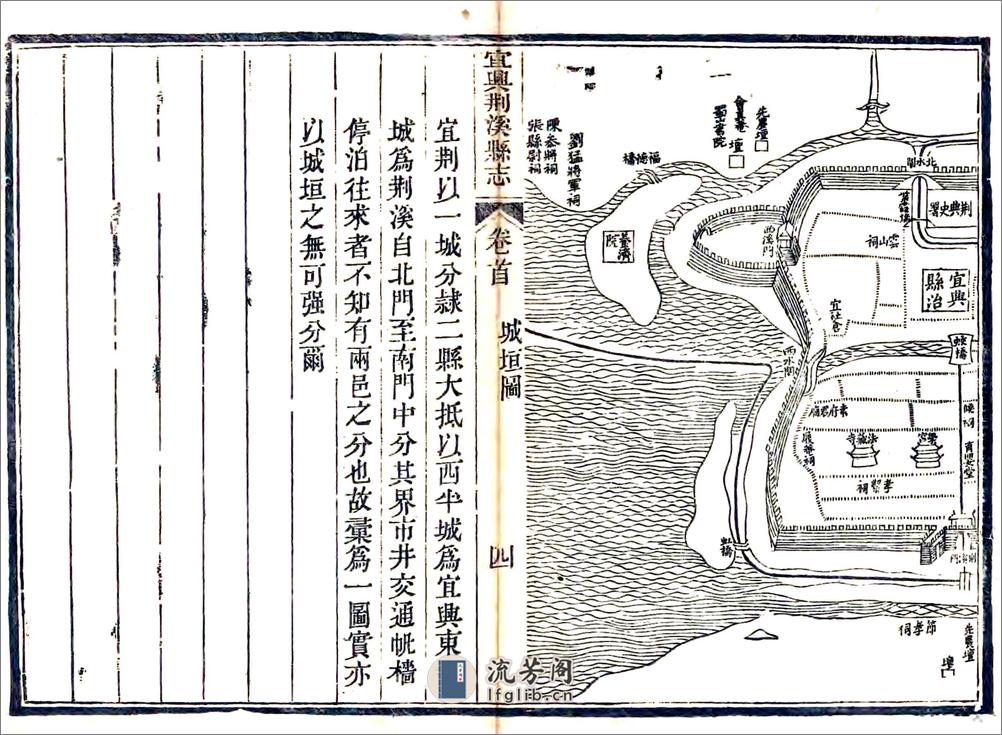 先農壇
壇
會真庵
蜀山書院
福德橋
劉猛將軍祠
陳參將祠
張縣尉祠
北水關
荆典史署
雲山祠
西溪門
宜興縣治
宜社倉
蛟橋
西水關
法藏寺
育嬰堂
虹橋
節孝祠
先農壇
壇
宜興荆溪縣志
卷首
城垣圖
四
宜荆以一城分隷二縣大抵以西半城爲宜興東
城爲荆溪自北門至南門中分其界市井交通帆檣
停泊往來者不知有兩邑之分也故彙爲一圖實亦
以城垣之無可强分爾
流芳阁
lfglib.cn